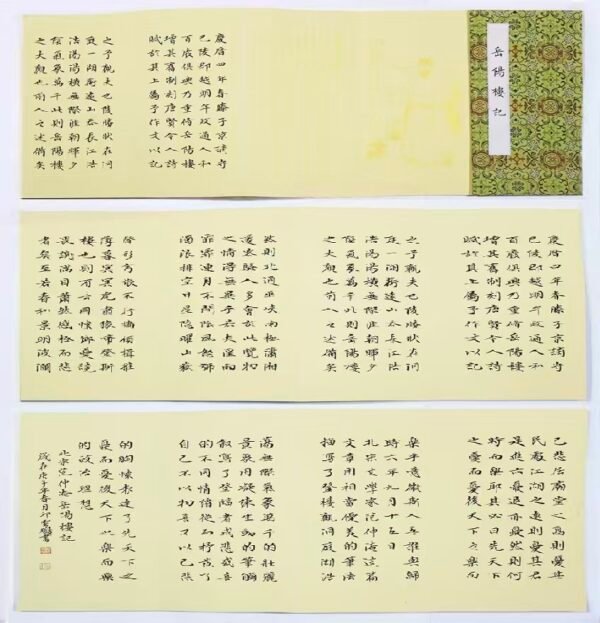 岳陽樓記
慶曆四年春滕子京謫守
巴陵郡越明年政通人和
百廢俱興乃重修岳陽樓
增其舊制刻唐賢今人詩
賦於其上屬予作文以記
之予觀夫巴陵勝狀在洞
庭一湖銜遠山吞長江浩
浩湯湯橫無際涯朝暉夕
陰氣象萬千此則岳陽樓
之大觀也前人之述備矣
慶曆四年春滕子京謫守
巴陵郡越明年政通人和
百廢俱興乃重修岳陽樓
增其舊制刻唐賢今人詩
賦於其上屬予作文以記
之予觀夫巴陵勝狀在洞
庭一湖銜遠山吞長江浩
浩湯湯橫無際涯朝暉夕
陰氣象萬千此則岳陽樓
之大觀也前人之述備矣
然則北通巫峽南極瀟湘
遷客騷人多會於此覽物
之情得無異乎若夫霪雨
霏霏連月不開陰風怒號
濁浪排空日星隱曜山嶽
潛形商旅不行檣傾楫摧
薄暮冥冥虎嘯猿啼登斯
樓也則有去國懷鄉憂讒
畏譏滿目蕭然感極而悲
者矣至若春和景明波瀾
己悲居廟堂之高則憂其
民處江湖之遠則憂其君
是進亦憂退亦憂然則何
時而樂耶其必曰先天下
之憂而憂後天下之樂而
樂乎噫微斯人吾誰與歸
時六年九月十五日
北宋文學家范仲淹這篇
文章用相當優美的筆法
描寫了登樓觀洞庭湖浩
蕩無際氣象萬千的壯麗
景象用凝練生動的筆調
敘寫了登臨者或悲或喜
的不同情緒從而抒發了
自己不以物喜不以己悲
的胸懷表達了先天下之
憂而憂後天下之樂而樂
的政治理想
北宋范仲淹岳陽樓記
歲在庚子年春月